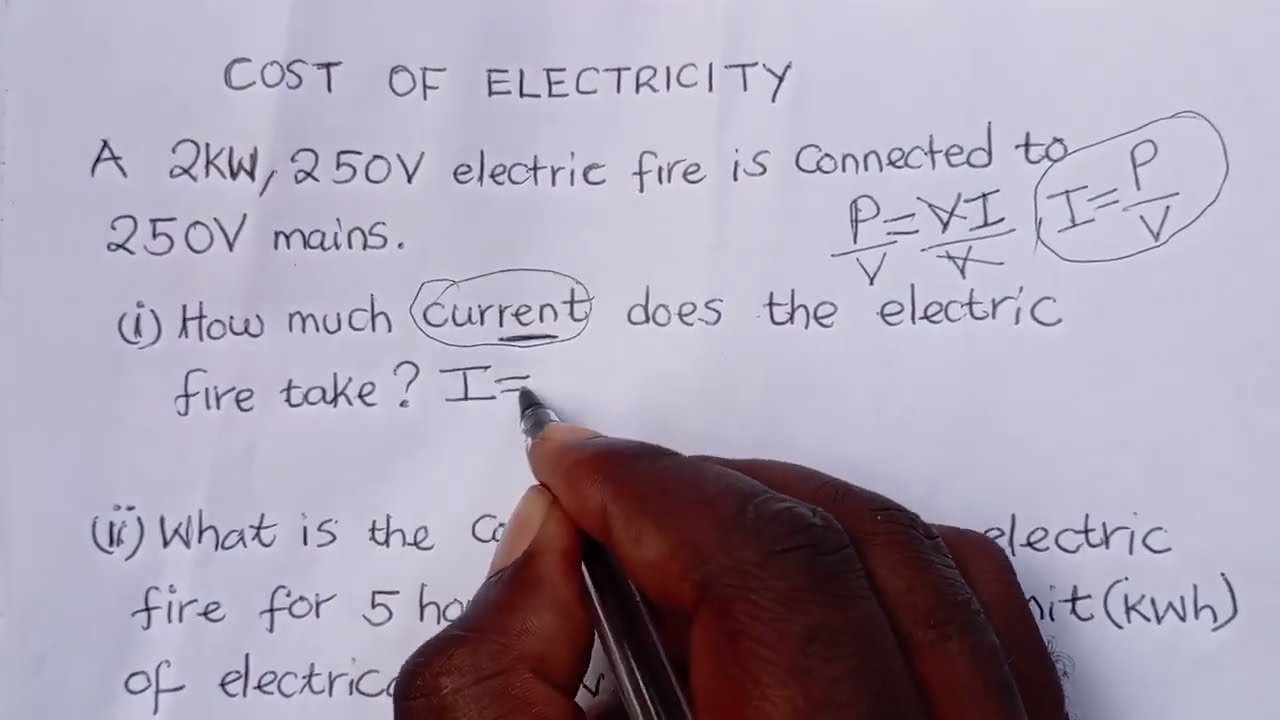 COST OF ELECTRICITY
A 2KW, 250V electric fire is connected to
250V mains.
P/V = VI/V I = P/V
(i) How much current does the electric
fire take? I=
(ii) What is the electric
fire for 5 (kwh)
of